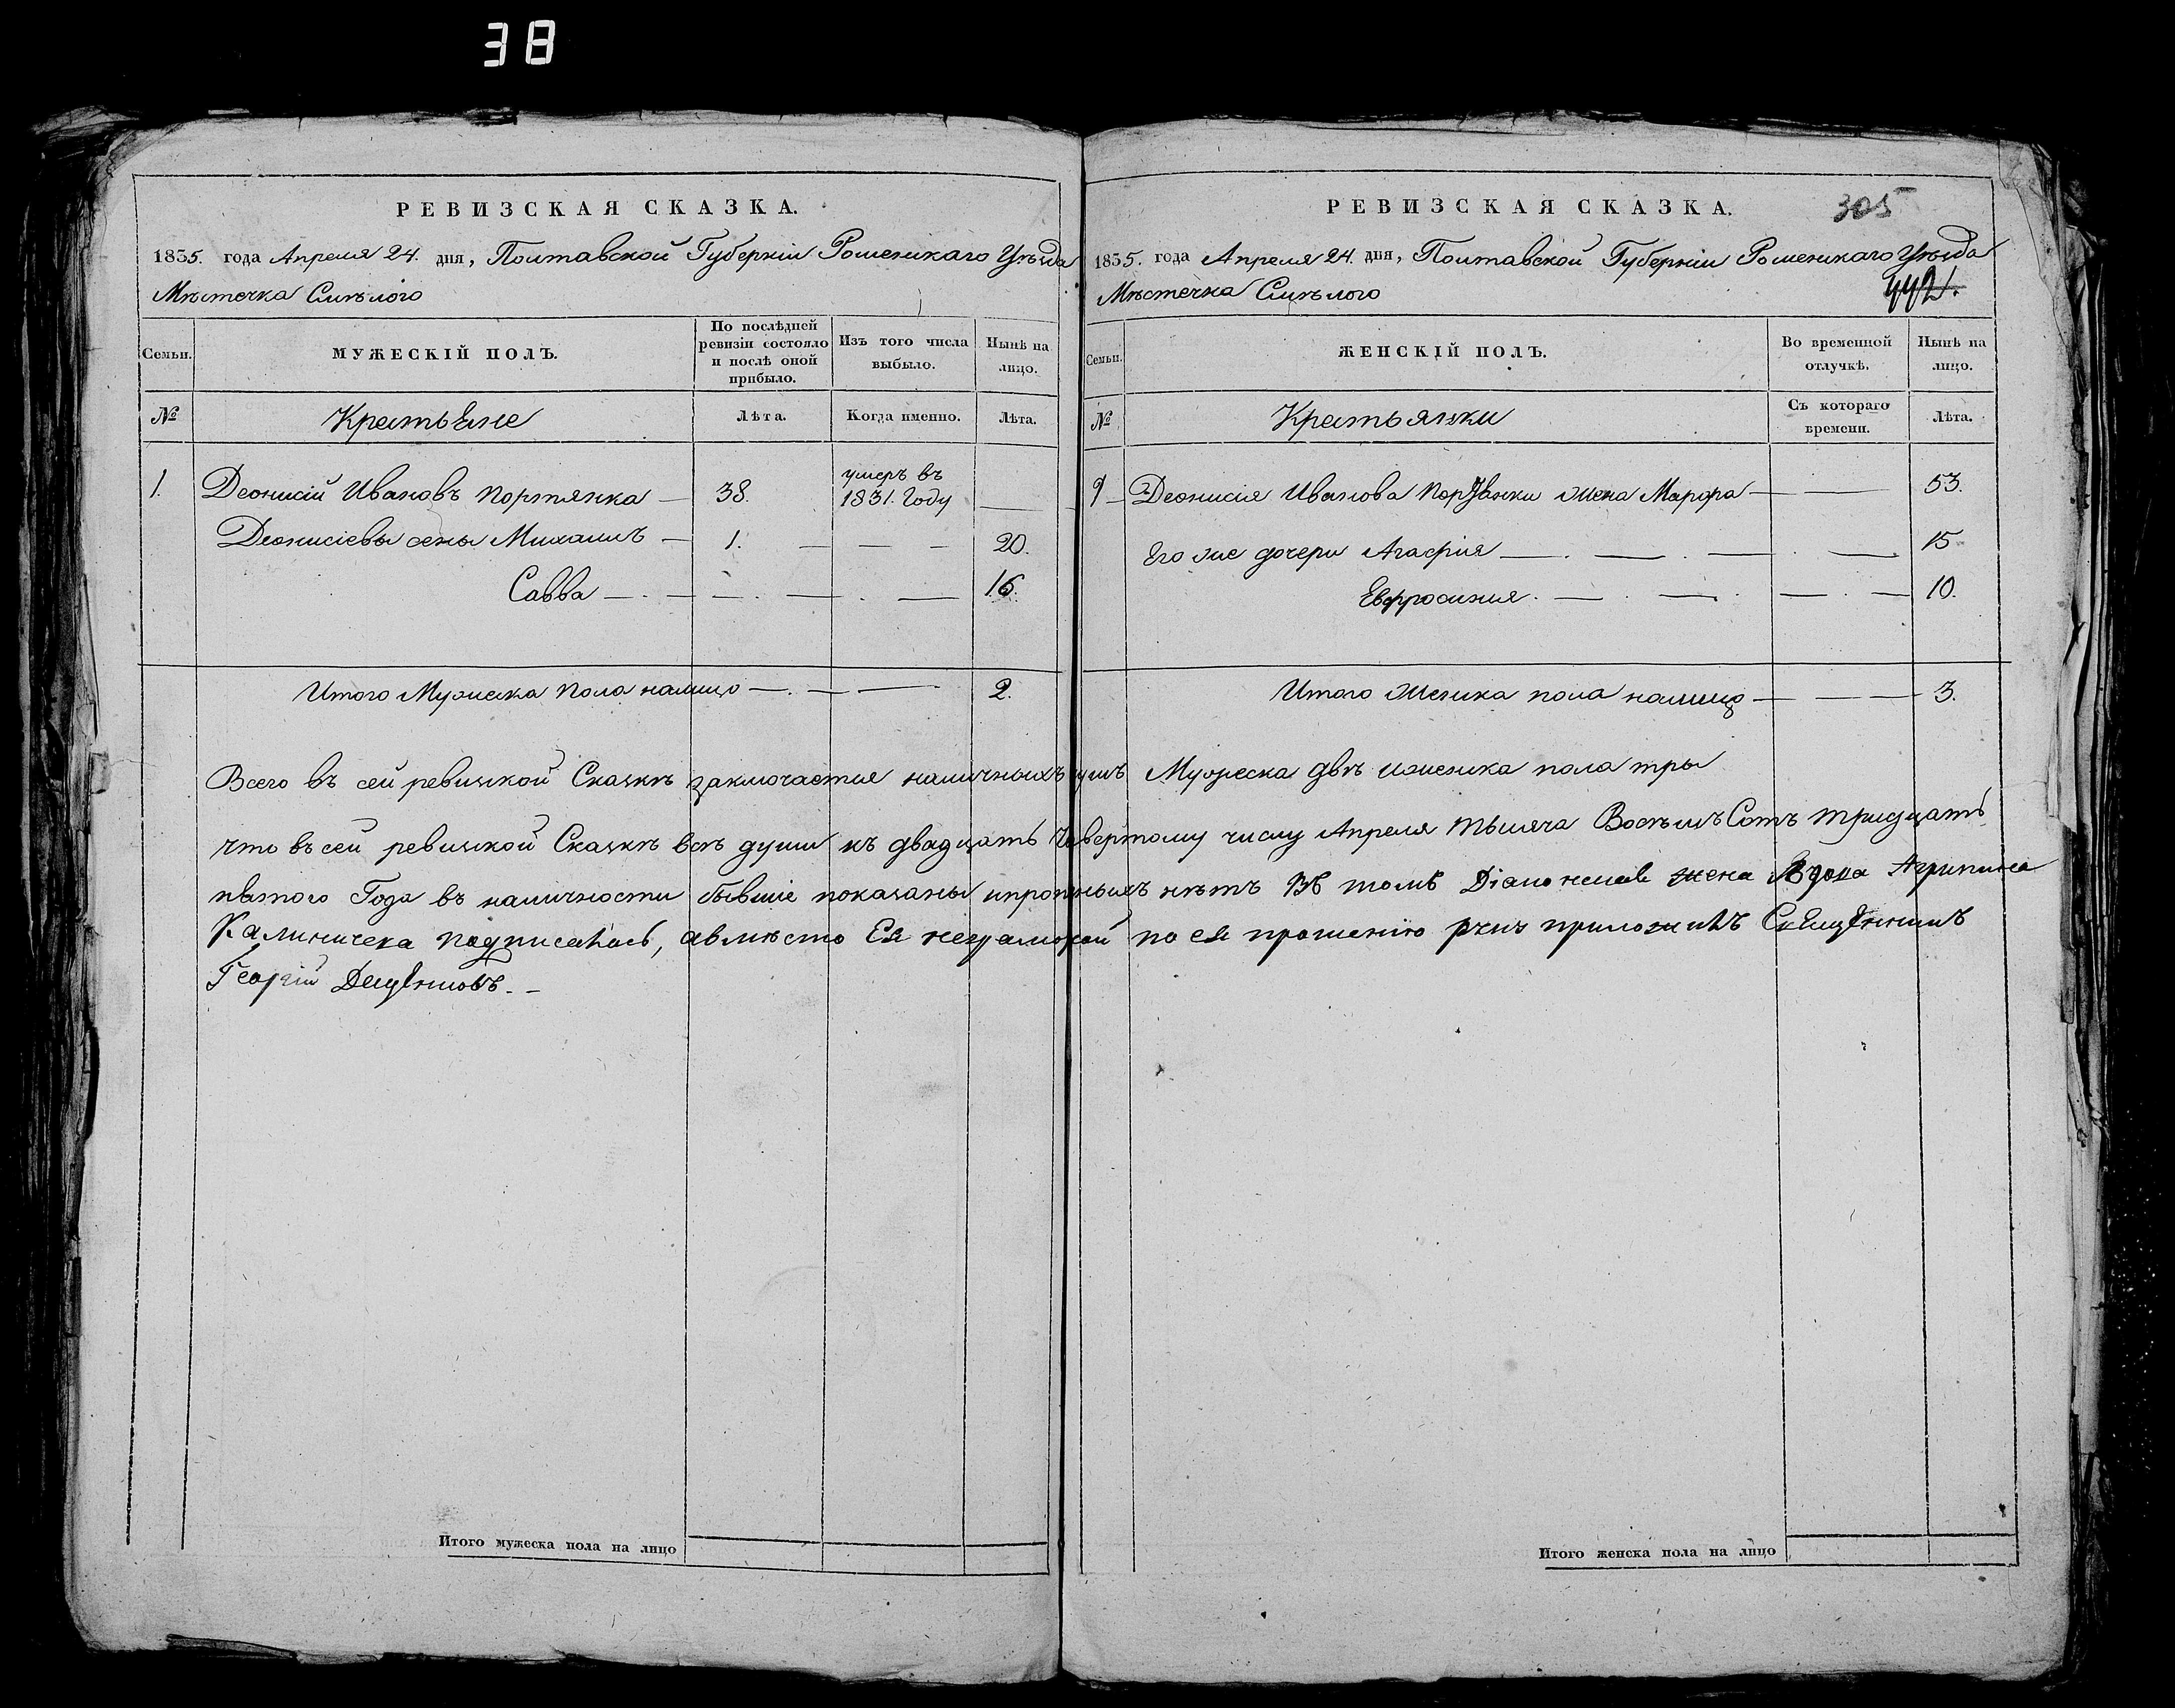 38
РЕВИЗСКАЯ СКАЗКА.
1835. года Апреля 24. дня, Полтавской Губерніи Роменскаго Уѣзда
Мѣстечка Смѣлого
Семьи.
МУЖЕСКІЙ ПОЛЪ.
По послѣдней ревизіи состояло и послѣ оной прибыло.
Изъ того числа выбыло.
Нынѣ на лицо.
№
Крестьяне
Лѣта.
Когда именно.
Лѣта.
1. Деонисій Ивановъ Портянка — 38. умеръ въ 1831. Году —
Деонисіевы сены Михаилъ — 1. — — — 20.
Савва — — — — — 16.
Итого Мужеска пола налицо — — — 2.
РЕВИЗСКАЯ СКАЗКА.
305
1835. года Апреля 24. дня, Полтавской Губерніи Роменскаго Уѣзда
Мѣстечка Смѣлого
442.
Семьи.
ЖЕНСКІЙ ПОЛЪ.
Во временной отлучкѣ.
Нынѣ на лицо.
№
Крестьянки
Съ котораго времени.
Лѣта.
Деонисія Иванова Портянки жена Марфа — — 53.
Его же дочери Агафія — — — — 15
Евфросинія — — — — 10.
Итого женска пола налицо — — — 3.
Всего въ сей ревизкой Сказкѣ заключается наличныхъ душъ Мужеска двѣ иженска пола тры
что въ сей ревизкой Сказкѣ всѣ души къ двадцать Четвертому числу Апреля тысяча Восѣмъ Сотъ тридцать
пятого Года въ наличности бывшіе показаны ипрописныхъ нѣтъ Въ томъ жена Вдова Агрипина
подписалась, авместо Ея неграмотной по ея прошенію руку приложилъ Священникъ
Георгій
Итого мужеска пола на лицо
Итого женска пола на лицо